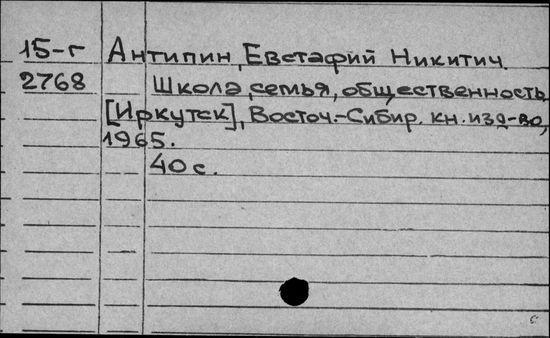 15-г Антипин, Евстафий Никитич.
2768 Школа, семья, общественность,
[Иркутск], Восточ.-Сибир. кн. изд-во,
1965.
40 с.